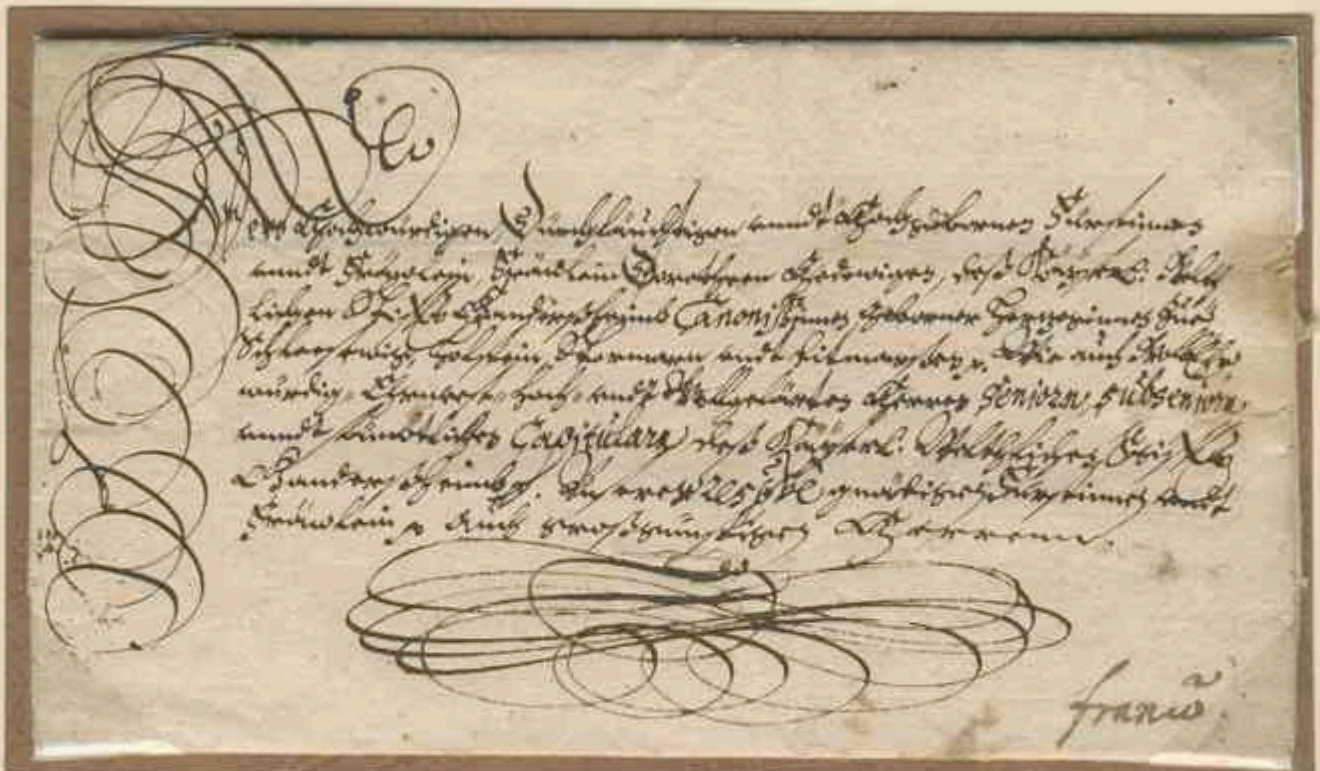 Der Hochwürdigen Durchläuchtigen unndt Hochgebornen Fürstinnen
unndt Fräwlein, Fräwlein Dorotheen Hedewigen, deß Kayserl: Weltt
lichen Stiffts Ganderßheimb Canonissinnen geborner Hertzoginnen zue
Schleßewig, Holstein, Stormarn undt Ditmarschen. Wie auch
würdig- Ehrnvest- Hoch- undt Wollgelärten Herren Seniorn, Subseniorn,
unndt sämbtlichen Capitularn deß Kayserl: Weltlichen Stiffts
Ganderßheimbs. gnädigen Fürstinnen undt
Fräwlein auch großgünstigen Herren.
franco